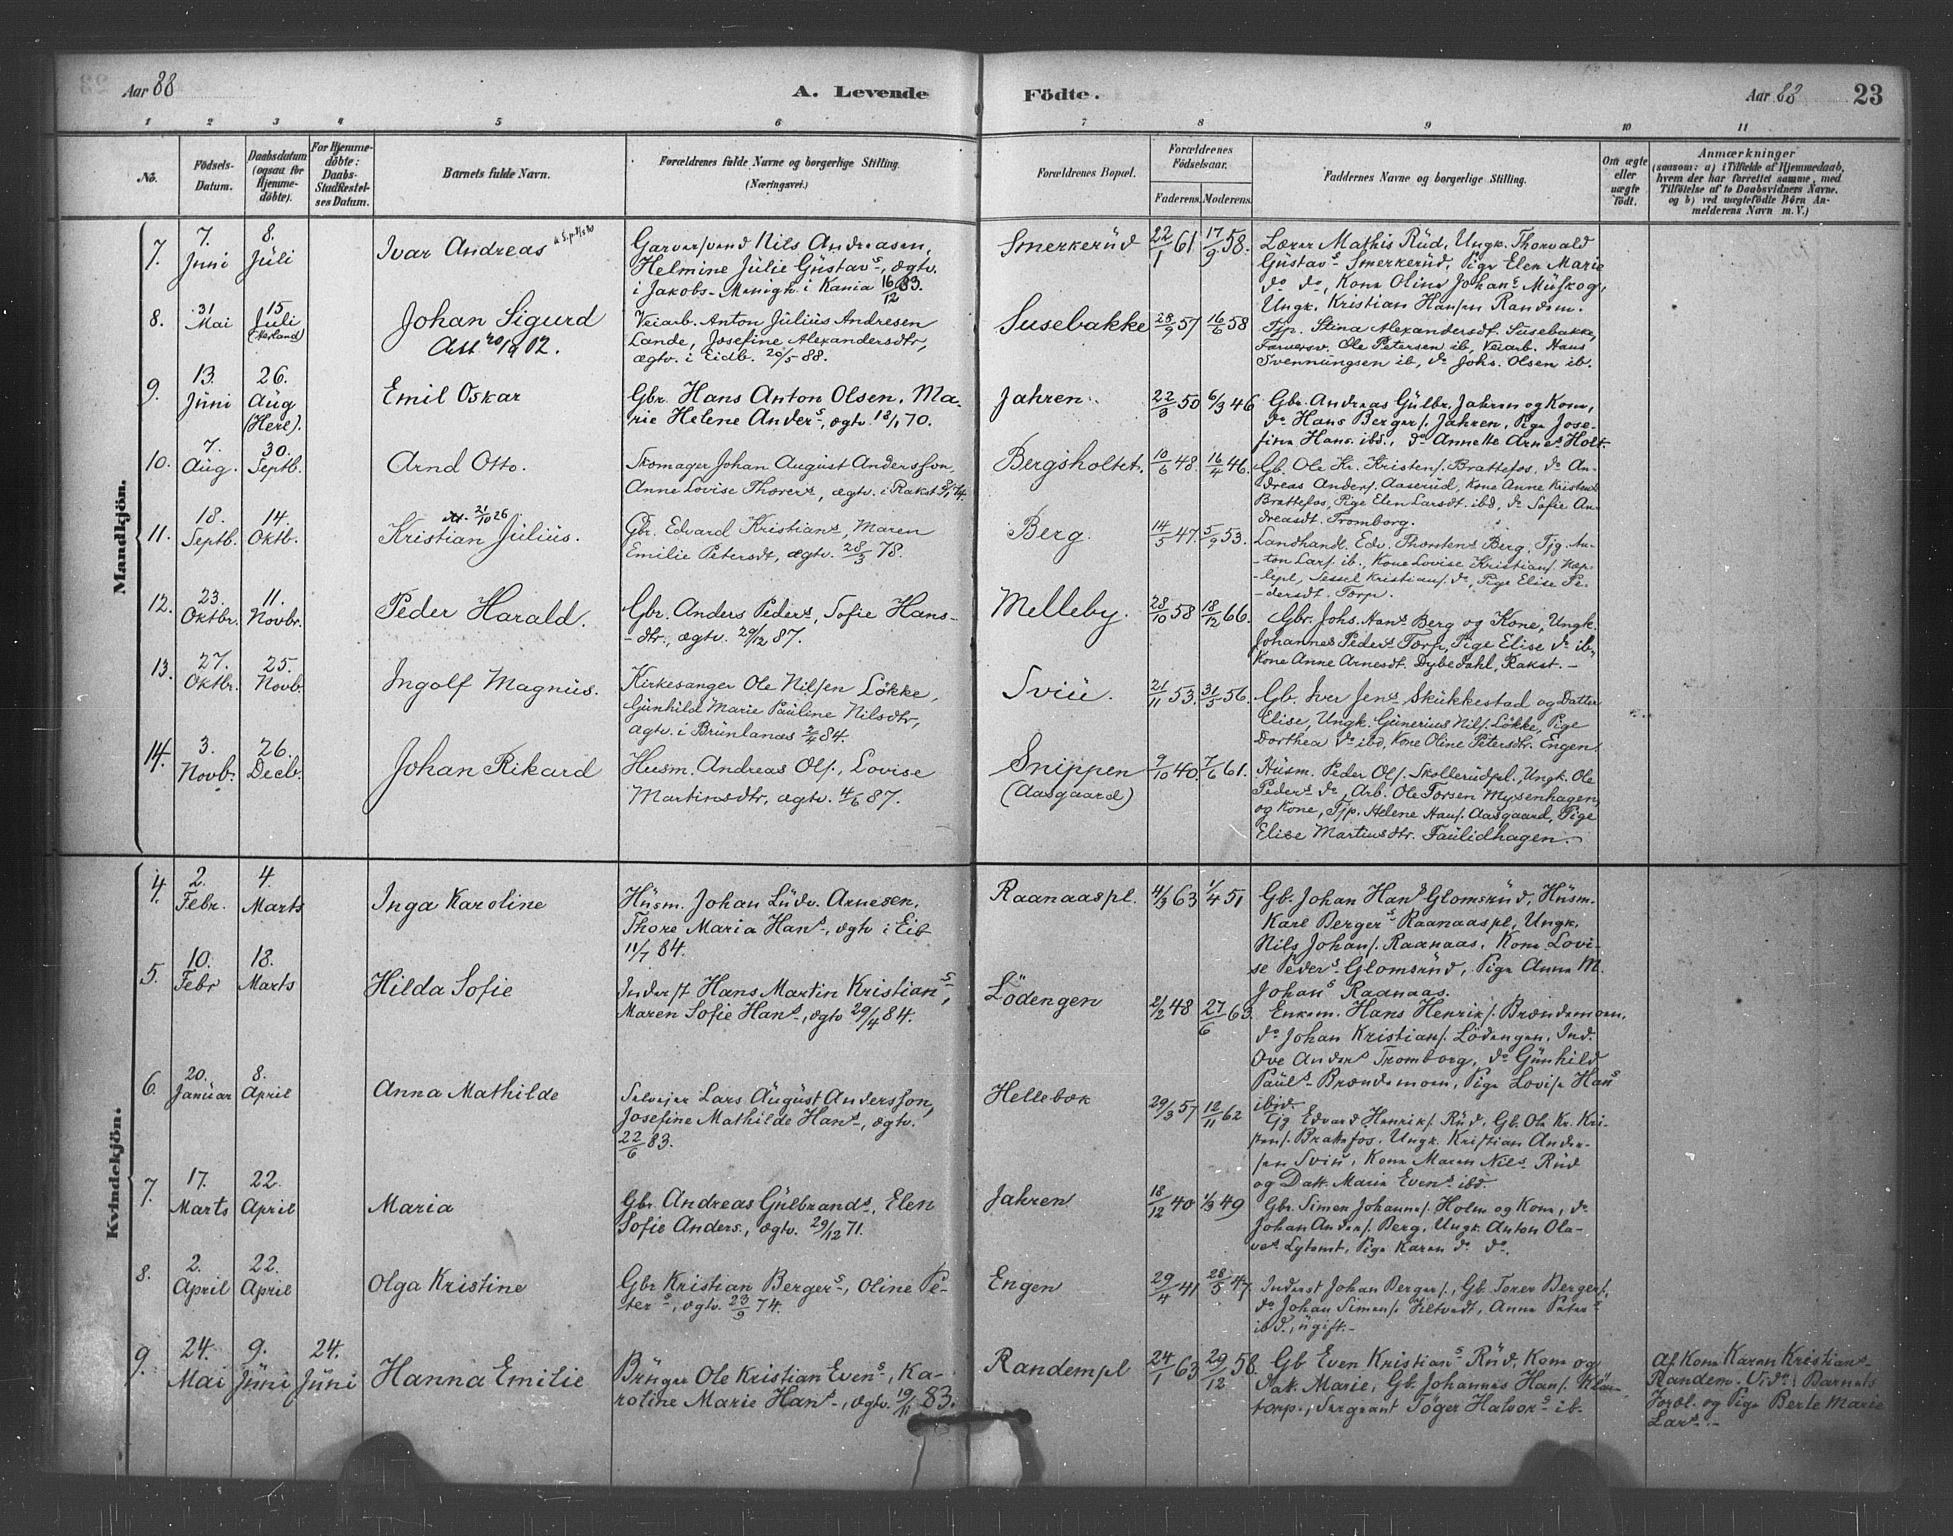 Aar 88
A. Levende
Födte.
Aar 88
23
1 2 3 4 5 6 7 8 9 10 11
No.
Födsels-Datum.
Daabsdatum (ogsaa for Hjemme-döbte).
For Hjemme-döbte: Daabs-Stadfæstel-ses Datum.
Barnets fulde Navn.
Forældrenes fulde Navne og borgerlige Stilling. (Næringsvei.)
Forældrenes Bopæl.
Forældrenes Födselsaar.
Faderens. Moderens.
Faddernes Navne og borgerlige Stilling.
Om ægte eller uægte födt.
Anmærkninger
(saasom: a) i Tilfælde af Hjemmedaab,
hvem der har forrettet samme, med
Tilföielse af to Daabsvidners Navne.
og b) ved uægtefödte Börn An-
melderens Navn m. V.)
Mandkjön.
7. 7. Juni 8. Juli Ivar Andreas
Garversvend Nils Andreasen,
Helmine Julie Gustavs., ægtv.
i Jakobs-Menigh. i Kania 16/12 83.
Smerkerud 22/1 61 17/9 58.
Lærer Mathis Rud, Ungk. Thorvald
Gustavs. Smerkerud, Pige Elen Marie
do do, Kone Oline Johans. Muskog,
Ungk. Kristian Hansen Randem.
8. 31 Mai 15 Juli Johan Sigurd
Att 20/9 02.
Veiarb. Anton Julius Andresen
Lande, Josefine Alexandersdtr,
ægtv. i Eidb. 20/5 88.
Susebakke 28/9 57 16/6 58
Tjp. Stina Alexandersdt. Susebakke,
Farversv. Ole Petersen ib, Veiarb. Hans
Svenningsen ib, do Johs. Olsen ib.
9. 13. Juni 26. Aug (Here). Emil Oskar
Gbr. Hans Anton Olsen, Ma-
rie Helene Anders., ægtv. 18/1 70.
Jahren. 22/8 50 6/3 46
Gbr. Andreas Gulbr. Jahren og Kone,
do Hans Bergers. Jahren, Pige Jose-
fine Hans. ibd., do Annette Arnes. Holt.
10. 7. Aug. 30. Septb. Arnd Otto.
Skomager Johan August Andersson,
Anne Lovise Thorers., ægtv. i Rakst. 8/1 74.
Bergsholtet. 10/6 48. 16/4 46.
Gb. Ole Kr. Kristens. Brattefos, do An-
dreas Anders. Aaserud, Kone Anne Kristend
Brattefos, Pige Elen Larsdt. ibd, do Sofie An-
dreasdt. Tromborg.
11. 18. Septb. 14. Oktb. 21/10 26
Kristian Julius.
Gbr. Edvard Kristians., Maren
Emilie Petersdt, ægtv. 28/3 78.
Berg. 14/5 47. 5/9 53.
Landhandl. Edv. Thorstens. Berg, Tjg. An-
ton Lars. ib., Kone Lovise Kristians.
Sessel Kristians. do, Pige Elise Pe-
dersdt. Torp.
12. 23. Oktbr. 11. Novbr. Peder Harald.
Gbr. Anders Peders., Sofie Hans-
dtr., ægtv. 29/12 87.
Melleby. 28/10 58 18/12 66.
Gbr. Johs. Hans. Berg og Kone, Ungk.
Johannes Peders. Torp, Pige Elise do ib,
Kone Anne Arnesdt. Dybedahl, Rakst. -
13. 27. Oktbr. 25. Novb. Ingolf Magnus.
Kirkesanger Ole Nilsen Løkke,
Gunhild Marie Pauline Nilsdtr,
ægtv. i Brunlanæs 2/4 84.
Sviu. 21/11 53. 31/5 56.
Gb. Iver Jens. Skukkestad og Datter
Elise, Ungk. Gunerius Nils. Løkke, Pige
Dorthea do ibd, Kone Oline Petersdtr. Engen
14. 3. Novb. 26. Decb. Johan Rikard
Husm. Andreas Ols., Lovise
Martinsdtr, ægtv. 4/6 87.
Snippen (Aasgaard) 9/10 40. 7/6 61.
Husm. Peder Ols. Skollerudpl., Ungk. Ole
Peders. do, Arb. Ole Torsen Mysenhagen,
og Kone, Tjp. Helene Hans. Aasgaard, Pige
Elise Martinsdtr. Faulidhagen.
Kvindekjön.
4. 2. Febr. 4. Marts Inga Karoline
Husm. Johan Ludv. Arnesen,
Thore Maria Hans., ægtv i Eib
11/7 84.
Raanaaspl. 4/3 63 1/4 51
Gb. Johan Hans. Glomsrud, Husm.
Karl Bergers. Raanaaspl, Ungk.
Nils Johans. Raanaas, Kone Lovi-
se Peders. Glomsrud, Pige Anna M.
Johans. Raanaas.
5. 10. Febr 18. Marts Hilda Sofie
Inderst Hans Martin Kristians.,
Maren Sofie Hans., ægtv 29/4 84.
Lödengen 2/2 48 27/6 63.
Enkem. Hans Henriks. Brændemoen,
do Johan Kristians. Lödengen, Ind.
Ove Anders. Tromborg, do Gunhild
Pauls. Brændemoen, Pige Lovise Hans
ibid.
6. 20. Januar 8. April Anna Mathilde
Selveier Lars August Andersson,
Josefine Mathilde Hans., ægtv.
22/6 83.
Hellebæk 29/3 57 12/11 62
Tjg Edvard Henriks. Rud, Gb. Ole Kr. Kri-
stens. Brattefos, Ungk. Kristian Ander-
sen Sviu, Kone Maren Nils. Rud
og Datt. Maria Evens. ibd.
7. 17. Marts 22. April Maria
Gbr. Andreas Gulbrands., Elen
Sofie Anders., ægtv. 29/12 71.
Jahren 18/12 40 1/3 49
Gbr. Simen Johannes. Holm og Kone, do
Johan Anders. Berg, Ungk. Anton Ola-
ves. Lytomt, Pige Karen do do.
8. 2. April 22. April Olga Kristine
Gbr Kristian Bergers., Oline Pe-
ters., ægtv. 23/9 74.
Engen 29/4 41 28/5 47.
Inderst Johan Bergers., Gb. Torer Bergers.,
do Johan Simens. Hiltvedt, Anne Peters.
ibd., ugift.-
9. 24. Mai 9. Juni 24. Juni Hanna Emilie
Bruger Ole Kristian Evens., Ka-
roline Marie Hans., ægtv. 19/11 83.
Randempl 24/1 63 29/12 58.
Gb Even Kristians. Rud, Kone og
Dat. Marie, Gb. Johannes Hans.
torp., Sergeant Töger Halvors. ib.
Af Kone Karen Kristians.
Randem. Vid: Barnets
Foræl. og Pige Berte Marie
Lars.-